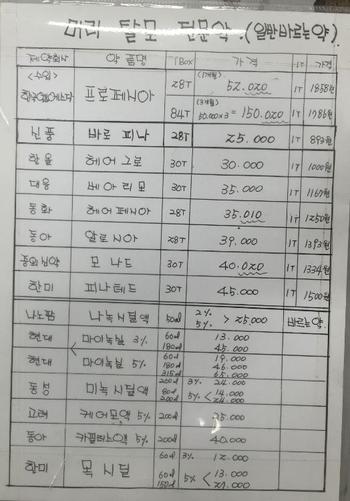 머리 탈모 전문약.(일반바르는약)
제약회사 약품명 1Box 가격 1T 가격
(수입) 프로페시아 28T (1개월) 52.020 1T 1858원
84T (3개월) 50.000×3 = 150.020 1T 1786원
신풍 바로 피나 28T 25.000 1T 893원
한올 헤어그로 30T 30.000 1T 1000원
대웅 베아리모 30T 35.000 1T 1167원
동화 헤어페시아 28T 35.010 1T 1250원
동아 알로시아 28T 39.000 1T 1393원
중외신약 모나드 30T 40.020 1T 1334원
한미 피나테드 30T 45.000 1T 1500원
나노팜 나녹시딜액 50ml 2% 5% > 25.000 바르는약
현대 마이녹실 3% 60ml 13.000
180ml 45.000
현대 마이녹실 5% 60ml 19.000
180ml 46.000
315ml 65.000
동성 미녹시딜액 200ml 3% 24.000
80ml 5% < 14.000
200ml 24.000
고려 케어모액 5% 200ml 25.000
동아 카필러스액 5% 200ml 40.000
한미 목시딜 60ml 3% 12.000
60ml 5% < 13.000
150ml 27.000